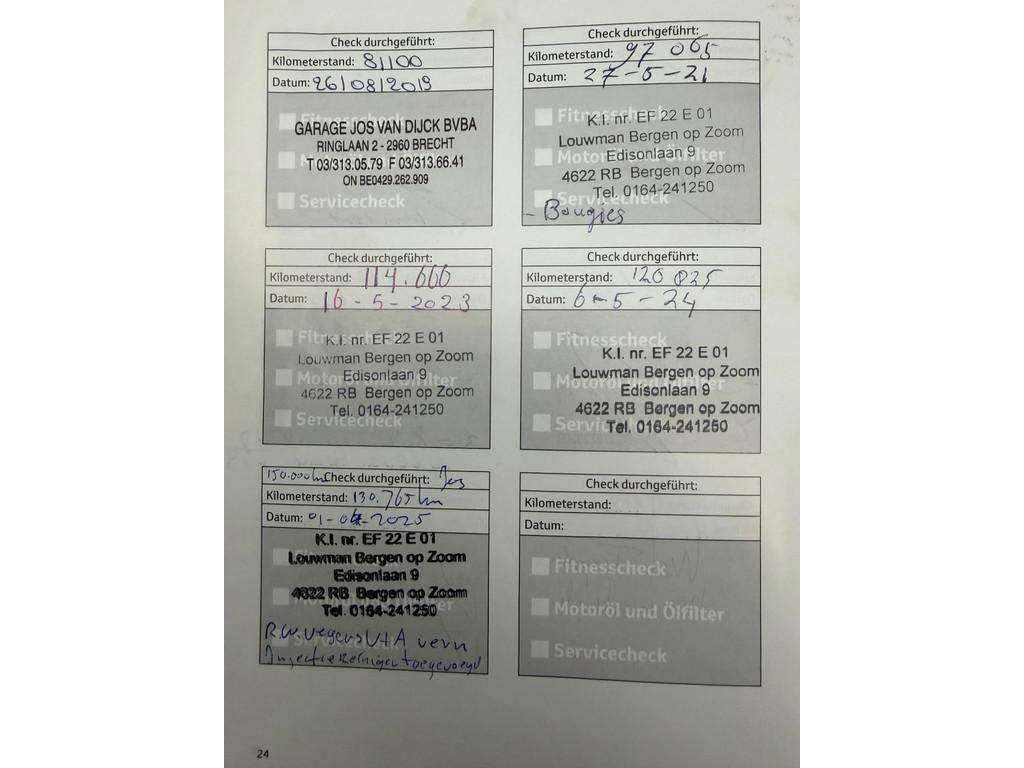 Check durchgeführt:
Kilometerstand: 81100
Datum: 26/08/2019
Fitnesscheck
Motoröl und Ölfilter
Servicecheck
GARAGE JOS VAN DIJCK BVBA
RINGLAAN 2 - 2960 BRECHT
T 03/313.05.79 F 03/313.66.41
ON BE0429.262.909
Check durchgeführt:
Kilometerstand: 97 065
Datum: 27-5-21
Fitnesscheck
Motoröl und Ölfilter
Servicecheck
K.I. nr. EF 22 E 01
Louwman Bergen op Zoom
Edisonlaan 9
4622 RB Bergen op Zoom
Tel. 0164-241250
- Bougies
Check durchgeführt:
Kilometerstand: 114.666
Datum: 16-5-2023
Fitnesscheck
Motoröl und Ölfilter
Servicecheck
K.I. nr. EF 22 E 01
Louwman Bergen op Zoom
Edisonlaan 9
4622 RB Bergen op Zoom
Tel. 0164-241250
Check durchgeführt:
Kilometerstand: 120 825
Datum: 6-5-24
Fitnesscheck
Motoröl und Ölfilter
Servicecheck
K.I. nr. EF 22 E 01
Louwman Bergen op Zoom
Edisonlaan 9
4622 RB Bergen op Zoom
Tel. 0164-241250
150.000km Check durchgeführt:
Kilometerstand: 130.765km
Datum: 01-04-2025
K.I. nr. EF 22 E 01
Louwman Bergen op Zoom
Edisonlaan 9
4622 RB Bergen op Zoom
Tel. 0164-241250
R.W. wegens V+A vern
Injectie Reiniger toegevoegd
Check durchgeführt:
Kilometerstand:
Datum:
Fitnesscheck
Motoröl und Ölfilter
Servicecheck
24